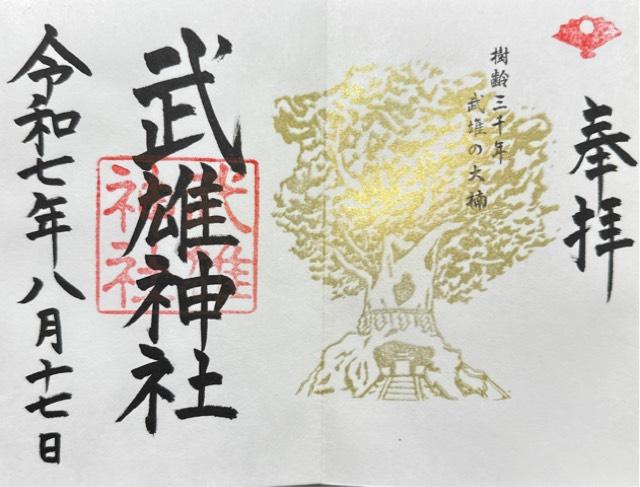 奉拝
樹齢三千年
武雄の大楠
武雄神社
武雄
神社
令和七年八月十七日